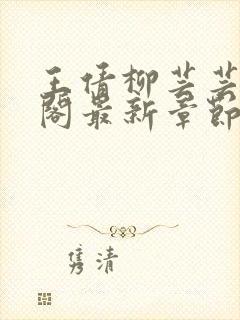 王倩柳芸芸
阁最新章节
隽清